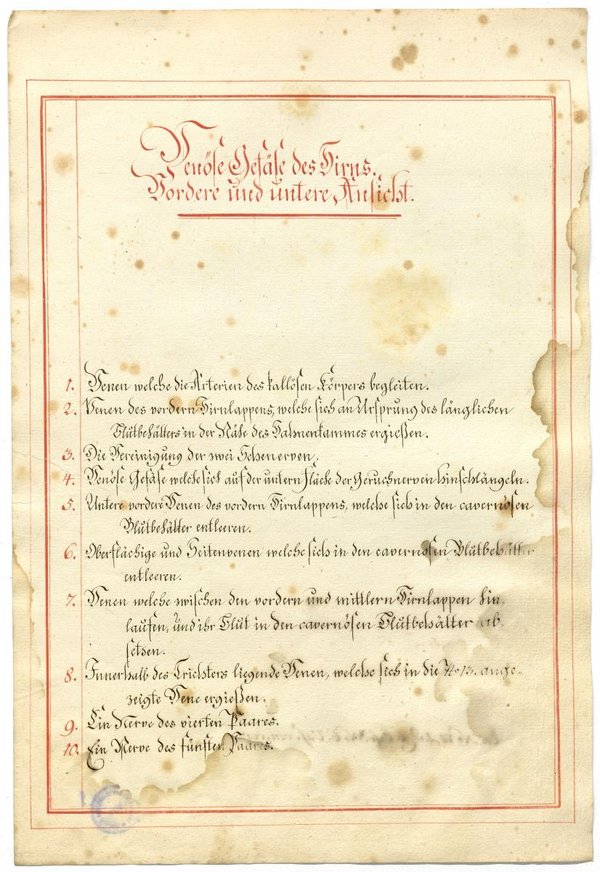 Venöse Gefäße des Hirns.
Vordere und untere Ansicht.
1. Venen welche die Arterien des kallösen Körpers begleiten.
2. Venen des vordern Hirnlappens, welche sich an Ursprung des länglichen
Blutbehälters in der Nähe des Hahnenkammes ergießen.
3. Die Vereinigung der zwei Sehenerven.
4. Venöse Gefäße welche sich auf der untern Fläche der Geruchnerven hinschlängeln.
5. Untere vordere Venen des vordern Hirnlappens, welche sich in den cavernösen
Blutbehälter entleeren.
6. Oberflächige und Seitenvenen welche sich in den cavernösen Blutbehälter
entleeren.
7. Venen welche zwischen den vordern und mittlern Hirnlappen hin-
laufen, und ihr Blut in den cavernösen Blutbehälter ab
setzen.
8. Innerhalb des Trichters liegende Venen, welche sich in die № 13. ange-
zeigte Vene ergießen.
9. Ein Nerve des vierten Paares.
10. Ein Nerve des fünften Paares.